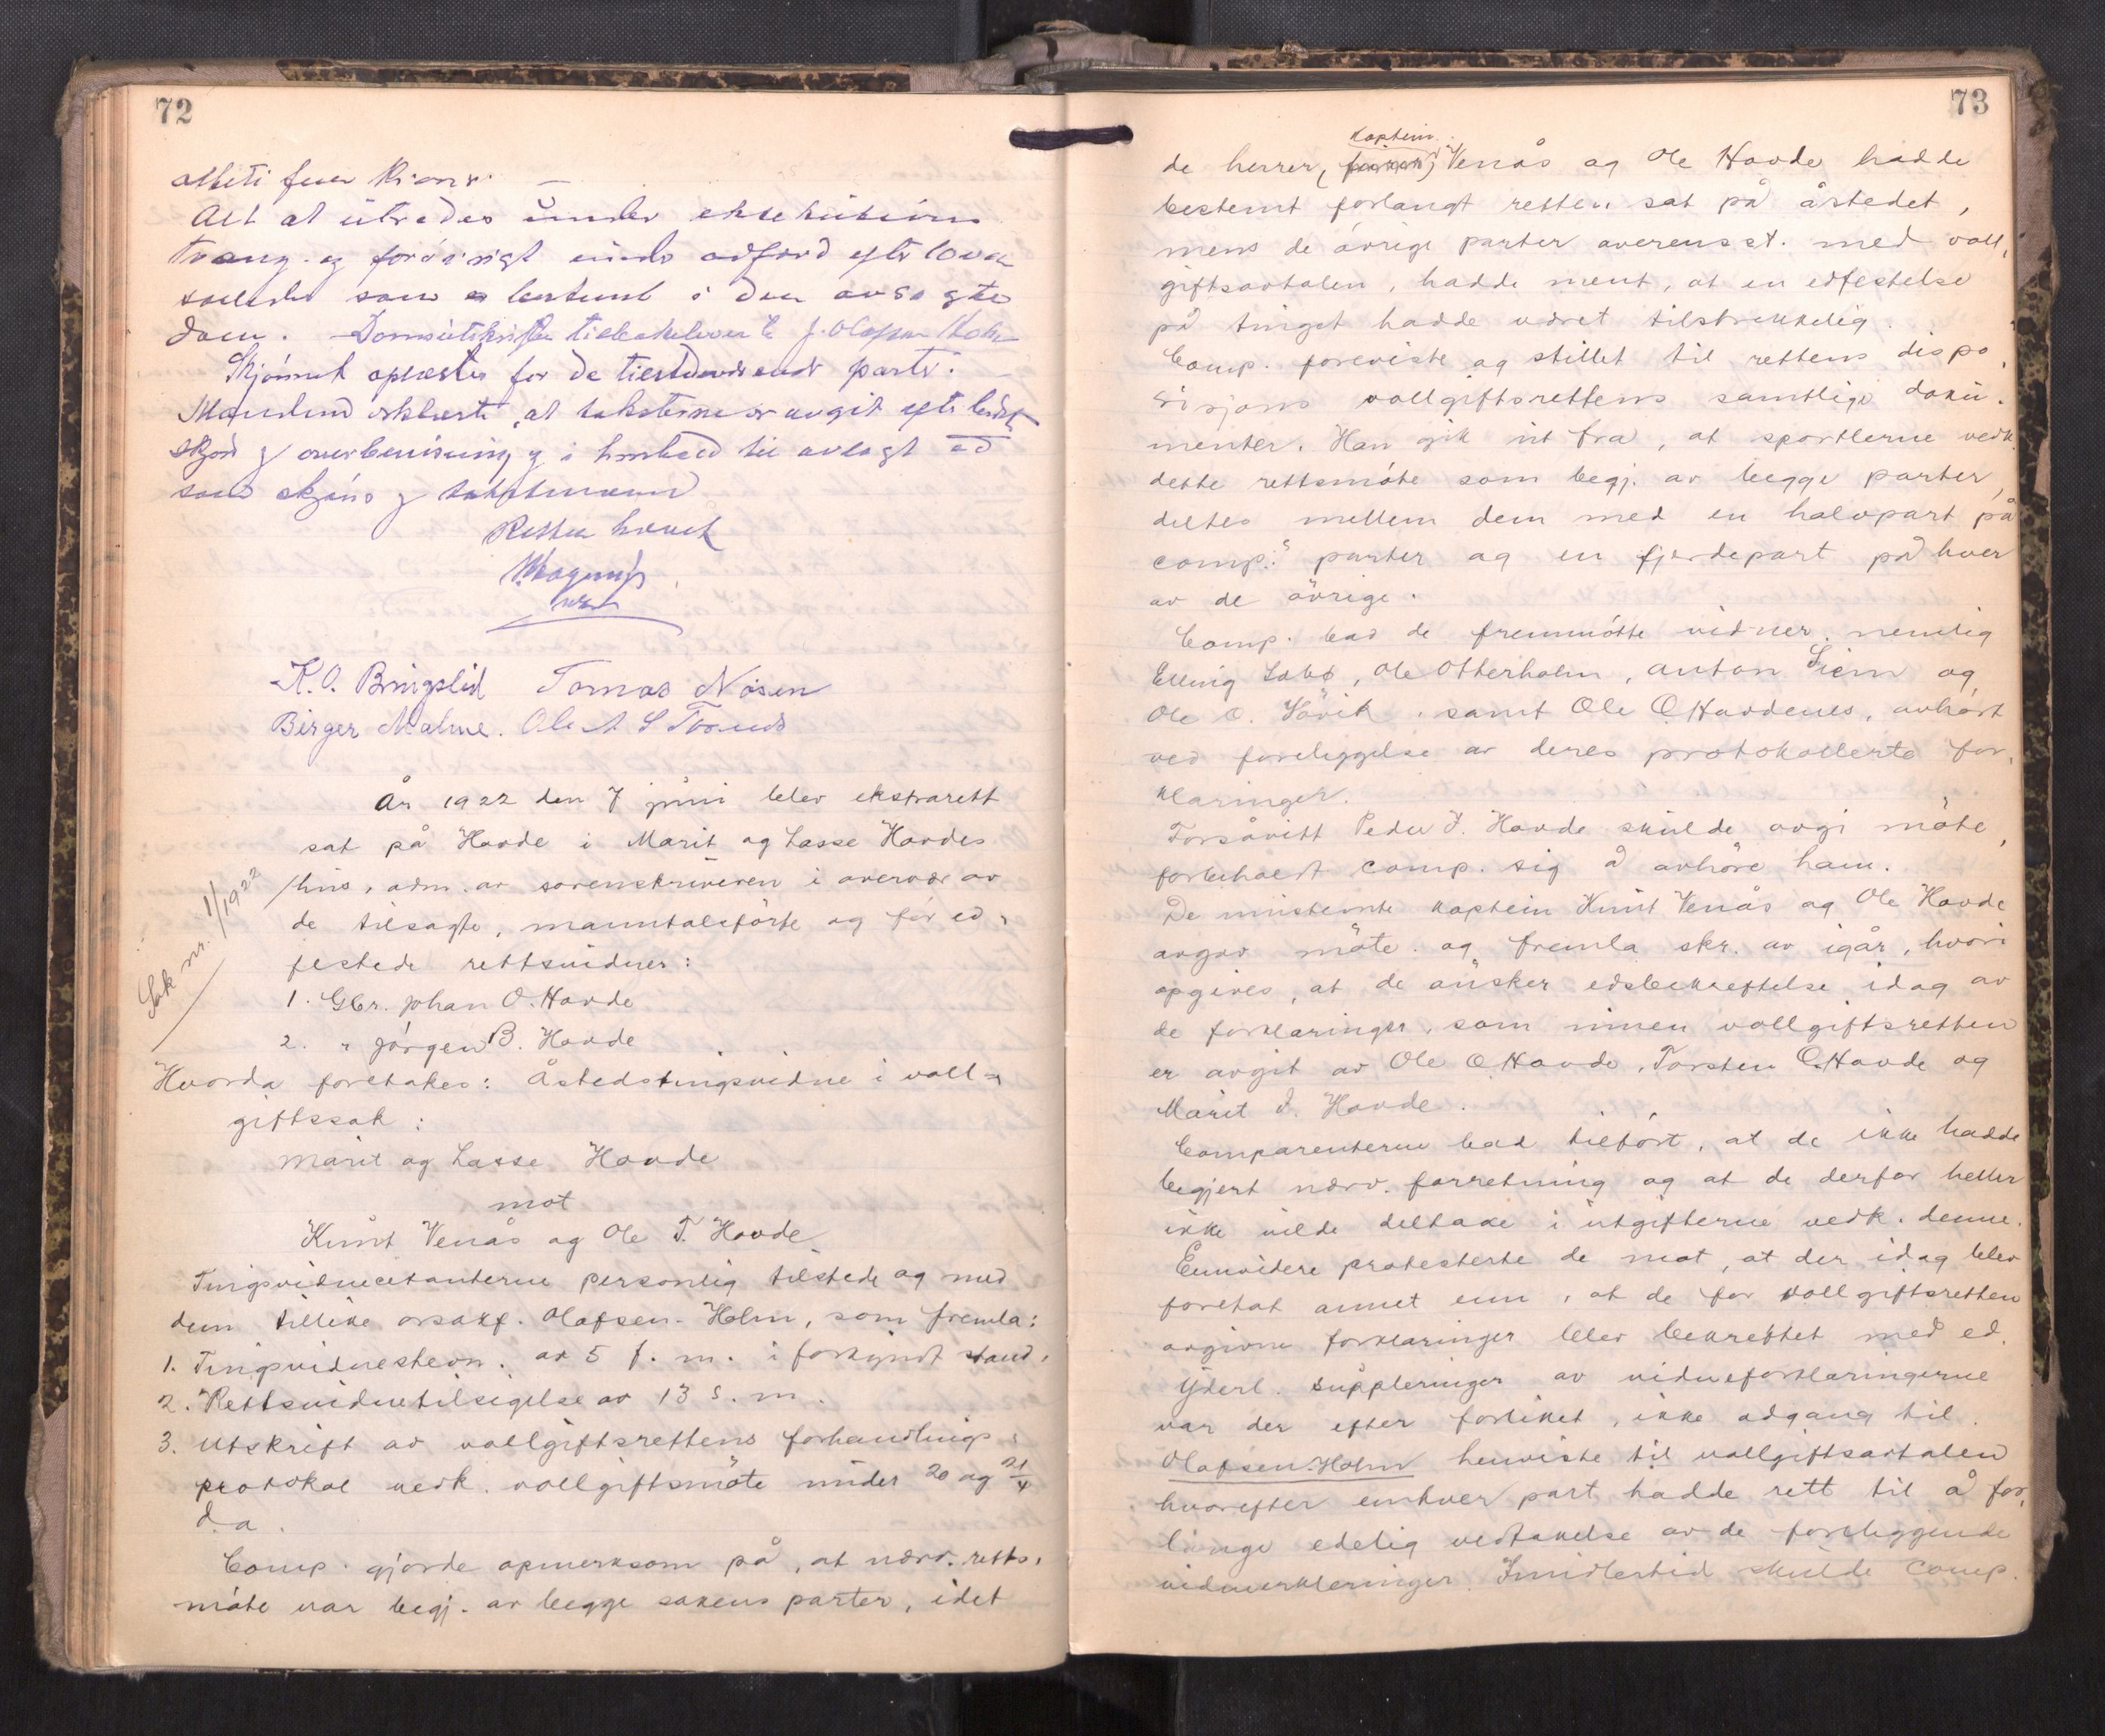 72
otteti fem kroner. —
Alt at utredes under eksekutions
tvang og forøvrigt under adferd efter loven
saaledes som er bestemt i den avsagte
dom. Domsutskriften tilbakelevert J. Olafsen Holm
Skjønnet oplæstes for de tilstedeværende parter. —
Mændene erklærte, at taksterne er avgit efter bedste
skjøn og overbevisning og i henhold til avlagt ed
som skjøns og takstmænd
Retten hævet
K. O. Bringslid Tomas Nåsen
Birger Malme. Ole A S Trønes
År 1922 den 7 juni blev ekstrarett
sat på Hovde i Marit og Lasse Hovdes
hus, adm. av sorenskriveren i overvær av
de tilsagte, manntalsförte og för ed-
festede rettsvidner:
Sak nr. 1/1922
1. Gbr. Johan O. Hovde
2. " Jörgen B. Hovde
Hvorda foretakes: Åstedstingsvidne i voll-
giftssak:
Marit og Lasse Hovde
mot
Knut Venås og Ole T. Hovde
Tingsvidnecitanterne personlig tilstede og med
dem tillike orsakf. Olafsen-Holm, som fremla:
1. Tingsvidnestevn. av 5 f. m. i forkynt stand.
2. Rettsvidnetilsigelse av 13 s. m.
3. Utskrift av vollgiftsrettens forhandlings-
protokol vedk. vollgiftsmöte under 20 og 21/4
d.a.
Comp. gjorde opmerksom på, at nærv. retts-
möte var begj. av begge sakens parter, idet
73
kaptein
de herrer, Venås og Ole Hovde hadde
bestemt forlangt retten sat på åstedet,
mens de övrige parter overensst. med voll-
giftsavtalen, hadde ment, at en edfestelse
på tinget hadde været tilstrekkelig.
Comp. foreviste og stillet til rettens dispo-
sisjons vollgiftsrettens samtlige doku-
menter. Han gik ut fra, at sportlerne vedk.
dette rettsmöte som begj. av begge parter,
deltes mellem dem med en halvpart på
comp.s parter og en fjerdepart på hver
av de övrige.
Comp. bad de fremmötte vidner, nemlig
Elling Sæbø, Ole Otterholm, Anton Siem og
Ole O. Hövik, samt Ole O Hovdenes, avhört
ved foreliggelse av deres protokollerte for-
klaringer.
Forsåvitt Peder J. Hovde skulde avgi möte,
forbeholdt comp. sig å avhöre ham.
De innstevnte kaptein Knut Venås og Ole Hovde
avgav möte og fremla skr. av igår, hvori
opgives, at de önsker edsbekreftelse idag av
de forklaringer, som innen vollgiftsretten
er avgit av Ole O Hovde, Torsten O. Hovde og
Marit J. Hovde.
Comparenterne bad tilfört, at de ikke hadde
begjert nærv. forretning og at de derfor heller
ikke vilde deltake i utgifterne vedk. denne.
Ennvidere protesterte de mot, at der idag blev
foretat annet enn, at de for vollgiftsretten
avgivne forklaringer blev bekreftet med ed.
Yderl. suppleringer av vidneforklaringerne
var der efter forliket, ikke adgang til.
Olafsen-Holm henviste til vollgiftsavtalen
hvorefter enhver part hadde rett til å for-
lange edelig vedtakelse av de foreliggende
vidneerkleringer. Imidlertid skulde comp.